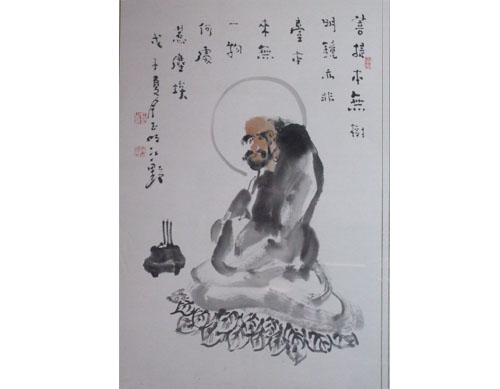 菩提本無樹
明鏡亦非
臺本
來無
一物
何處
惹塵埃
戊子夏